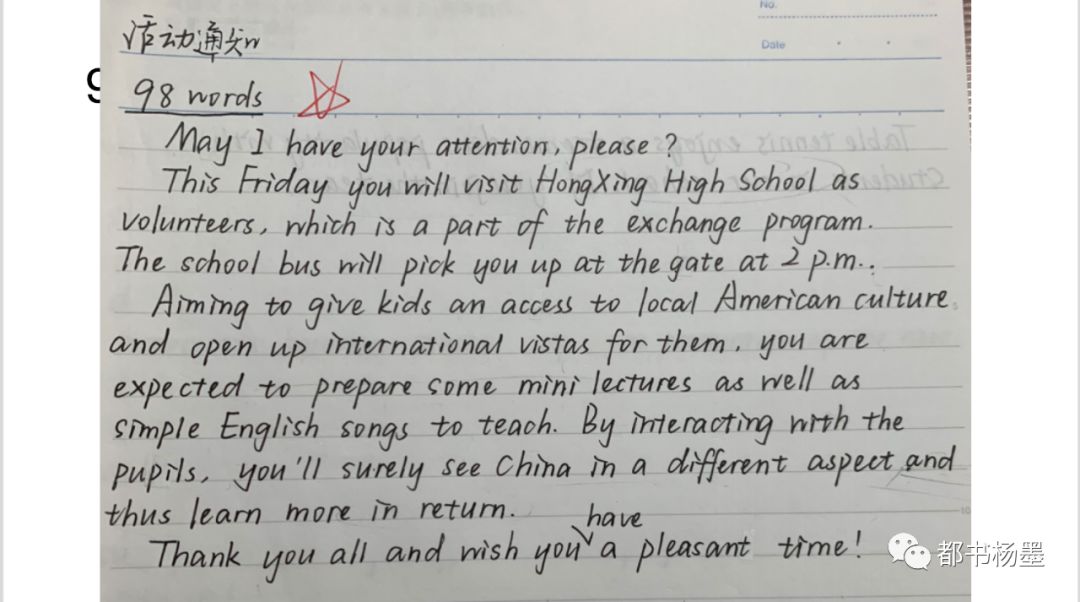 No.
Date
活动通知
9
98 words
May I have your attention, please?
This Friday you will visit HongXing High School as
volunteers, which is a part of the exchange program.
The school bus will pick you up at the gate at 2 p.m..
Aiming to give kids an access to local American culture
and open up international vistas for them, you are
expected to prepare some mini lectures as well as
simple English songs to teach. By interacting with the
pupils, you'll surely see China in a different aspect and
thus learn more in return.
have
Thank you all and wish you a pleasant time!
都书杨墨